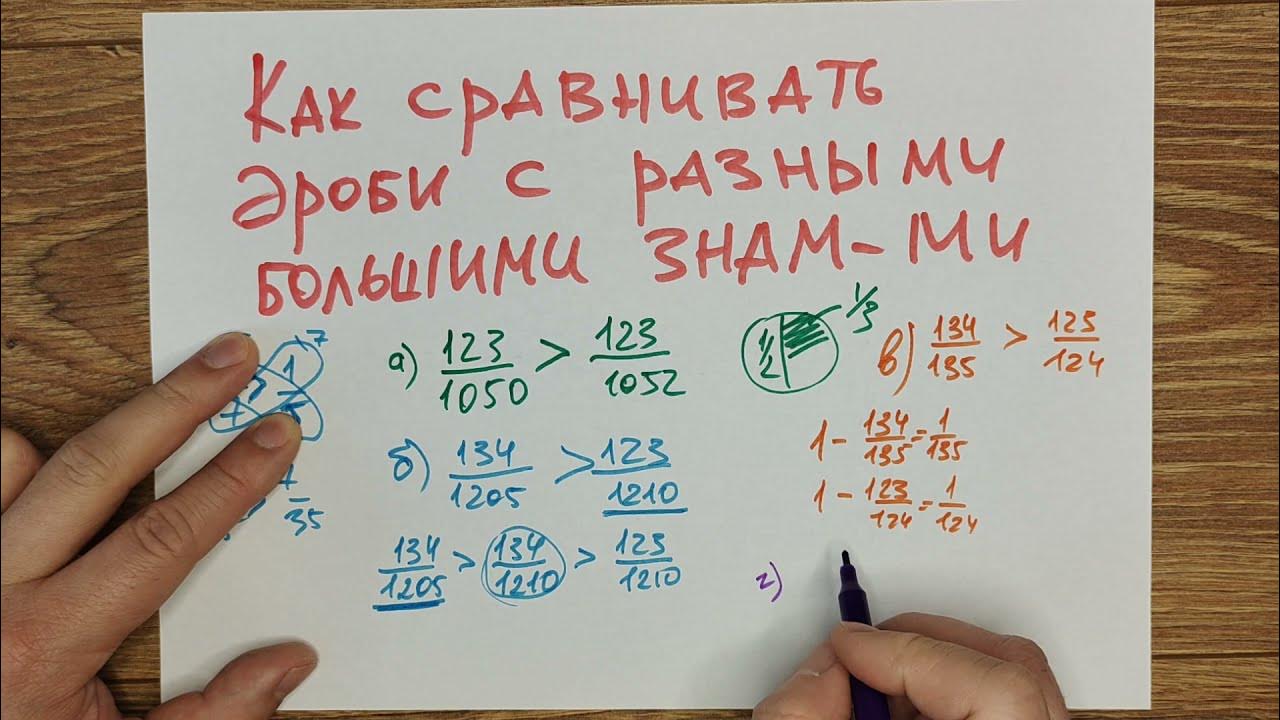 Как сравнивать
дроби с разными
большими знам-ми
а) 123/1050 > 123/1052
б) 134/1205 > 123/1210
134/1205 > 134/1210 > 123/1210
1/2 1/3
в) 134/135 > 123/124
1 - 134/135 = 1/135
1 - 123/124 = 1/124
г)
\7
1
35